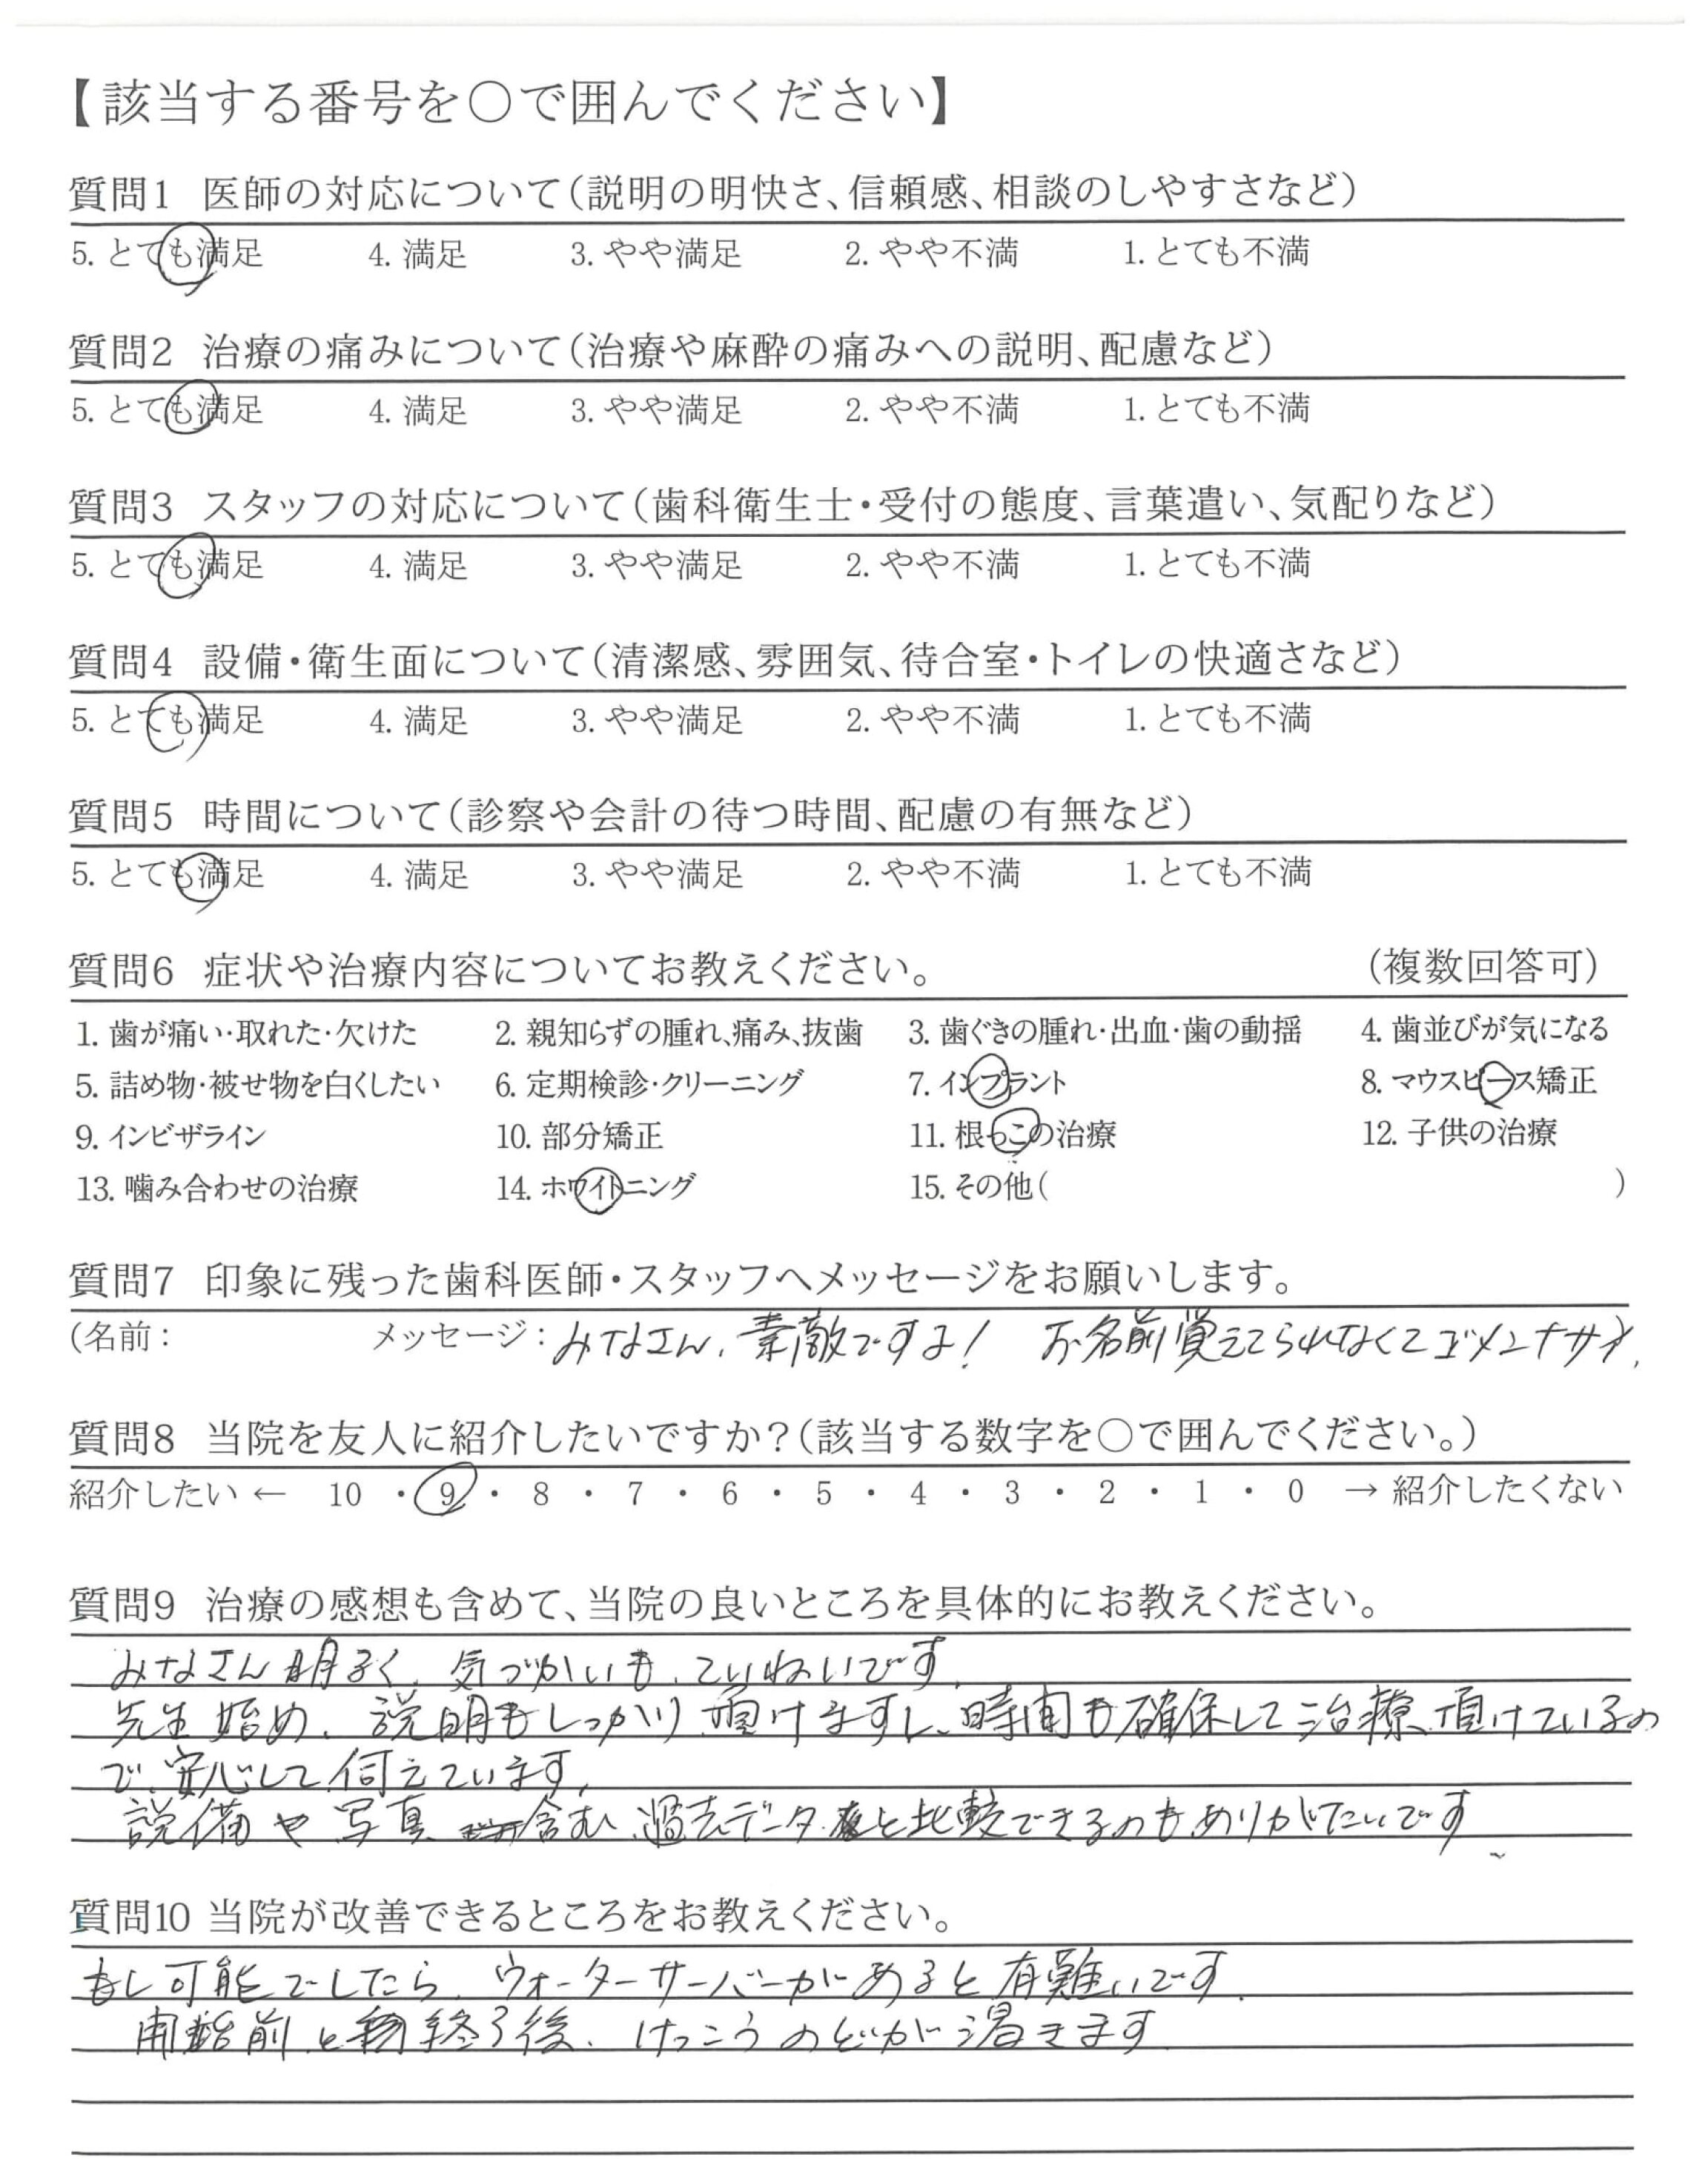 【該当する番号を○で囲んでください】
質問1 医師の対応について（説明の明快さ、信頼感、相談のしやすさなど）
5. とても満足 4. 満足 3. やや満足 2. やや不満 1. とても不満
質問2 治療の痛みについて（治療や麻酔の痛みへの説明、配慮など）
5. とても満足 4. 満足 3. やや満足 2. やや不満 1. とても不満
質問3 スタッフの対応について（歯科衛生士・受付の態度、言葉遣い、気配りなど）
5. とても満足 4. 満足 3. やや満足 2. やや不満 1. とても不満
質問4 設備・衛生面について（清潔感、雰囲気、待合室・トイレの快適さなど）
5. とても満足 4. 満足 3. やや満足 2. やや不満 1. とても不満
質問5 時間について（診察や会計の待つ時間、配慮の有無など）
5. とても満足 4. 満足 3. やや満足 2. やや不満 1. とても不満
質問6 症状や治療内容についてお教えください。 （複数回答可）
1. 歯が痛い・取れた・欠けた 2. 親知らずの腫れ、痛み、抜歯 3. 歯ぐきの腫れ・出血・歯の動揺 4. 歯並びが気になる
5. 詰め物・被せ物を白くしたい 6. 定期検診・クリーニング 7. インプラント 8. マウスピース矯正
9. インビザライン 10. 部分矯正 11. 根っこの治療 12. 子供の治療
13. 噛み合わせの治療 14. ホワイトニング 15. その他（ ）
質問7 印象に残った歯科医師・スタッフへメッセージをお願いします。
（名前： メッセージ：みなさん、素敵ですよ！ お名前覚えてられなくてゴメンナサイ、
質問8 当院を友人に紹介したいですか？（該当する数字を○で囲んでください。）
紹介したい ← 10 ・ 9 ・ 8 ・ 7 ・ 6 ・ 5 ・ 4 ・ 3 ・ 2 ・ 1 ・ 0 → 紹介したくない
質問9 治療の感想も含めて、当院の良いところを具体的にお教えください。
みなさん明るく、気づかいも、ていねいです、
先生始め、説明もしっかり頂けますし、時間も確保して治療、頂けているの
で、安心して伺えています、
説備や写真 含む、過去データと比較できるのもありがたいです
質問10 当院が改善できるところをお教えください。
もし可能でしたら、ウォーターサーバーがあると有難いです、
前と終了後、けっこうのどが渇きます